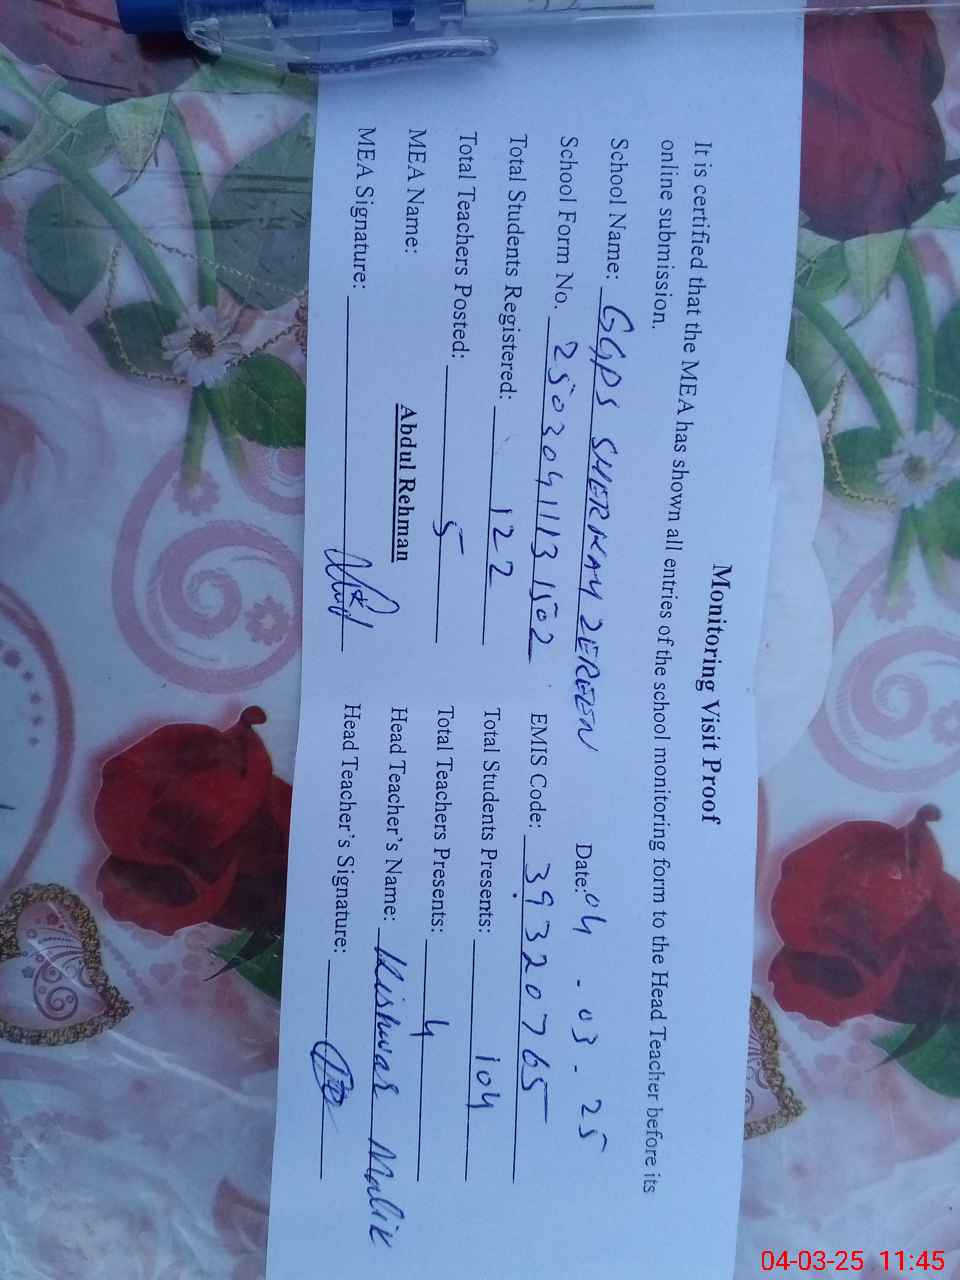 Monitoring Visit Proof
It is certified that the MEA has shown all entries of the school monitoring form to the Head Teacher before its
online submission.
School Name: GGPS SHERKAY ZEREEN Date: 04-03-25
School Form No. 25030411131502 EMIS Code: 39320765
Total Students Registered: 122 Total Students Presents: 104
Total Teachers Posted: 5 Total Teachers Presents: 4
MEA Name: Abdul Rehman Head Teacher's Name: Kishwar Malik
MEA Signature: Head Teacher's Signature:
04-03-25 11:45